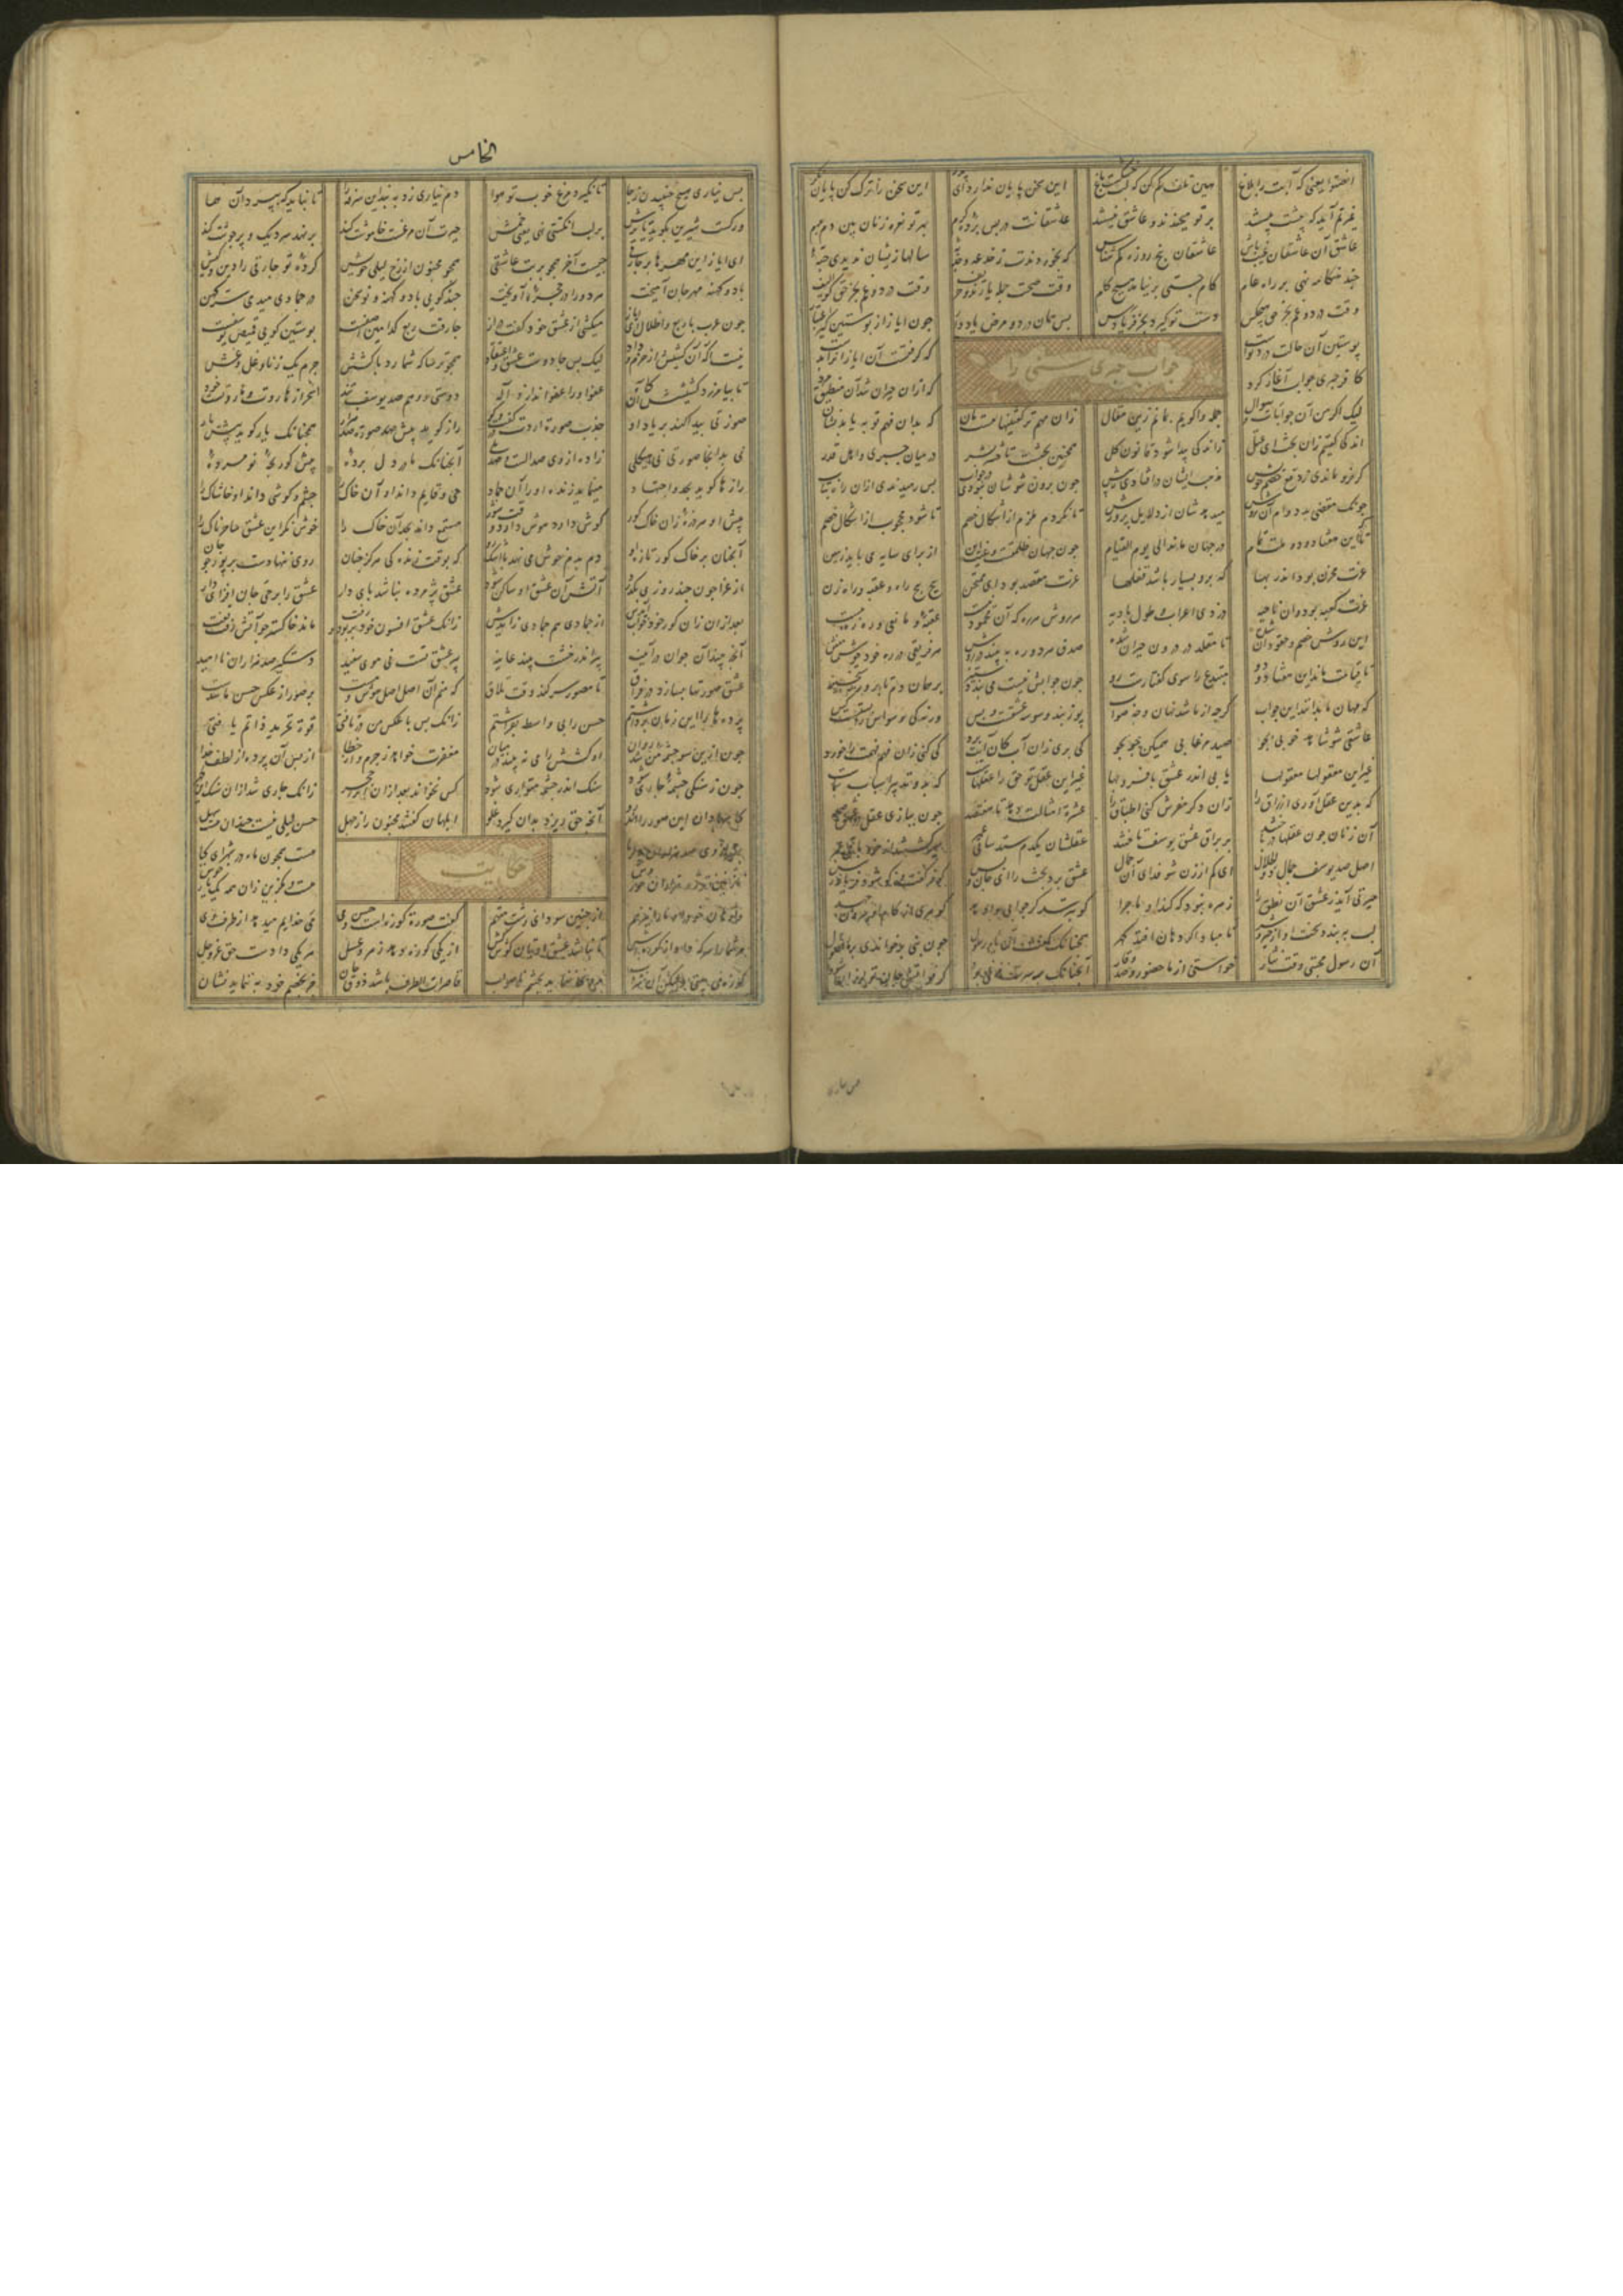 انصتوا یعنی که آبت را بلاغ هین تلف کم کن که لب خشکست باغ این سخن پایان ندارد ای پدر این سخن را ترک کن پایان نگر
غیرتم آید که پیشت بیستند بر تو میخندند و عاشق نیستند عاشقانت در پس پرده کرم بهر تو نعره زنان بین دم بدم
عاشق آن عاشقان غیب باش عاشقان پنج روزه کم تراش که بخوردندت ز خدعه و جذبۀ سالها زیشان ندیدی حبۀ
چند هنگامه نهی بر راه عام کام جستی بر نیامد هیچ کام وقت صحت جمله یارند و حریف وقت درد و غم بجز حق کو الیف
وقت درد و غم بجز حق هیچ کس دست تو گیرد بجز فریادرس پس همان درد و مرض یاد دار چون ایاز از پوستین گیر اعتبار
پوستین آن حالت درد توست که گرفتست آن ایاز آنرا بدست
جواب جبری سنی را
کافر جبری جواب آغاز کرد که از آن حیران شد آن منطیق مرد
لیک اگر من آن جوابات و سوال جمله واگویم بمانم زین مقال زان مهم تر گفتنیها هست مان که بدان فهم تو به یابد نشان
اندکی گفتیم زان بحث ای عتل زاندکی پیدا شود قانون کل همچنین بحثست تا حشر بشر در میان جبری و اهل قدر
گر فرو ماندی ز دفع خصم خویش مذهب ایشان بر افتادی ز پیش چون برون شوشان نبودی در جواب پس رمیدندی ازان راه تباب
چونک مقضی بد دوام آن روش میدهدشان از دلایل پرورش تا نگردد ملزم از اشکال خصم تا شود محجوب از اشکال خصم
تا که این هفتاد و دو ملت تمام در جهان ماند الی یوم القیام چون جهان ظلمتست و غیب این از برای سایه می باید زمین
عزت مخزن بود اندر بها که برو بسیار باشد قفلها عزت مقصد بود ای ممتحن پیچ پیچ راه و عقبه و راه زن
عزت کعبه بود وان ناحیه دزدی اعراب و طول بادیه هر روش هر ره که آن محمود نیست عقبۀ و مانعی و ره زنیست
این روش خصم و حقود آن شده تا مقلد در دو ره حیران شده صدق هر دو ره ببیند در روش هر فریقی در ره خود خوش منش
تا قیامت ماند این هفتاد و دو مبتدع را سوی گفتارست رو چون جوابش نیست می بندد ستیز بر همان دم تا بروز رستخیز
که مهان ما بدانند این جواب گرچه از ما شد نهان وجه صواب پوزبند وسوسه عشقست و بس ورنه کی وسواس را بستست کس
عاشقی شو شاهد خوبی بجو صید مرغابی همیکن جو بجو کی بری زان آب کان آبت برد کی کنی زان فهم فهمت را خورد
غیر این معقولها معقولها یابی اندر عشق با فر و بها غیر این عقل تو حق را عقلهاست که بدو تدبیر اسباب سماست
که بدین عقل آوری ارزاق را زان دگر مفرش کنی اطباق را عشرۀ امثالت دهد تا هفتصد چون ببازی عقل در عشق صمد
آن زنان چون عقلها درباختند بر رواق عشق یوسف تاختند عقلشان یکدم ستد ساقی عمر سیر گشتند از خرد باقی عمر
اصل صد یوسف جمال ذو الجلال ای کم از زن شو فدای آن جمال عشق برد بحث را ای جان و بس کو ز گفت و گو شود فریادرس
حیرتی آید ز عشق آن نطق را زهره نبود که کند او ماجرا کو بترسد گر جوابی وا دهد گوهری از
لب ببندد سخت او از خیر و شر تا مبادا کز دهان افتد گهر همچنانک گفت آن یار رسول چون نبی برخواندی بر ما فصول
آن رسول مجتبی وقت نثار خواستی از ما حضور و صد وقار آنچنانک بر سرت مرغی بود کز فواتش جان تو لرزان شود
الخامس
پس نیاری هیچ جنبیدن ز جا تا نگیرد مرغ خوب تو هوا دم نیاری زد ببندی سرفه را تا نباید که بپرد آن هما
ور کست شیرین بگوید یا ترش بر لب انگشتی نهی یعنی خمش حیرت آن مرغست خاموشت کند بر نهد سر دیگ و پر جوشت کند
ای ایاز این مهرها بر چارقی چیست آخر همچو بر بت عاشقی همچو مجنون از رخ لیلی خویش کردۀ تو چارقی را دین و کیش
با دو کهنه مهر جان آمیخته هر دو را در حجرۀ آویخته چند گویی با دو کهنه نو سخن در جمادی میدمی سر کهن
چون عرب با ربع و اطلال ای ایاز میکشی از عشق گفت خود دراز چارقت ربع کدامین آصفست پوستین گویی قمیص یوسفست
همچو ترسا که شمارد با کشش جرم یک ساله زنا و غل و غش
تا بیامرزد کشیشش آن گناه عفو او را عفو داند از اله
نیست آگه آن کشیش از جرم و داد لیک بس جادوست عشق و اعتقاد دوستی و وهم صد یوسف تند اسحر از هاروت و ماروتست خود
صورتی پیدا کند بر یاد او جذب صورت آردت در گفت و گو راز گویی پیش صورت صد هزار همچنانک یار گوید پیش یار
نی بدانجا صورتی نی هیکلی زاده از وی صد الست و صد بلی آنچنانک مادر دل برده پیش گور بچۀ نو مرده
رازها گوید بجد و اجتهاد مینماید زنده او را آن جماد حی و قایم داند او آن خاک را چشم و گوشی داند او خاشاک را
پیش او هر ذرۀ زان خاک گور گوش دارد هوش دارد وقت شور مستمع داند بجد آن خاک را خوش نگر این عشق ساحرناک را
آنچنان بر خاک گور تازه او دم بدم خوش می نهد با اشک رو که بوقت زندگی هرگز چنان روی ننهادست بر پور چو جان
از عزا چون چند روزی بگذرد آتش آن عشق او ساکن شود عشق بر مرده نباشد پایدار عشق را بر حی جان افزای دار
بعد ازان زان گور خود خواب آیدش از جمادی هم جمادی زایدش زانک عشق افسون خود بربود و رفت ماند خاکستر چو آتش رفت تفت
آنچ بیند آن جوان در آینه پیر اندر خشت بیند عاینه پیر عشق تست نی موی سفید دستگیر صد هزاران ناامید
عشق صورتها بسازد در فراق تا مصور سر کند وقت تلاق که منم آن اصل اصل هوش و مست بر صور از عکس حسن ما بدست
پرده ها را این زمان برداشتم حسن را بی واسطه بفراشتم زانک بس با عکس من دریافتی قوت تجرید ذاتم یافتی
چون ازین سو جذبۀ من شد روان او کشش را می نبیند در میان مغفرت خواهد ز جرم و از خطا از پس آن پرده از لطف خدا
چون ز سنگی چشمۀ جاری شود سنگ اندر چشمه متواری شود کس نخواند بعد ازان او را حجر زانک جاری شد ازان سنگ آن گهر
کاسها دان این صور را آنچ حق ریزد بدان گیرد علو ابلهان گفتند مجنون را ز جهل حسن لیلی نیست چندان هست سهل
بهتر از وی صد هزاران دلربا هست همچون ماه در شهر ای کیا
حکایت
نازنین تر زو هزاران حوروش هست بگزین زان همه یک یار خوش
وا رهان خود را و ما را نیز هم از چنین سودای زشت متهم گفت صورت کوزه است و حسن می می خدایم میدهد از ظرف وی
مر شما را سرکه داد از کوزه اش تا نباشد عشق اوتان گوش کش از یکی کوزه دهد زهر و عسل هر یکی را دست حق عز و جل
کوزه می بینی ولیکن آن شراب روی ننماید بچشم ناصواب قاصرات الطرف باشد ذوق جان جز بخصم خود ننماید نشان